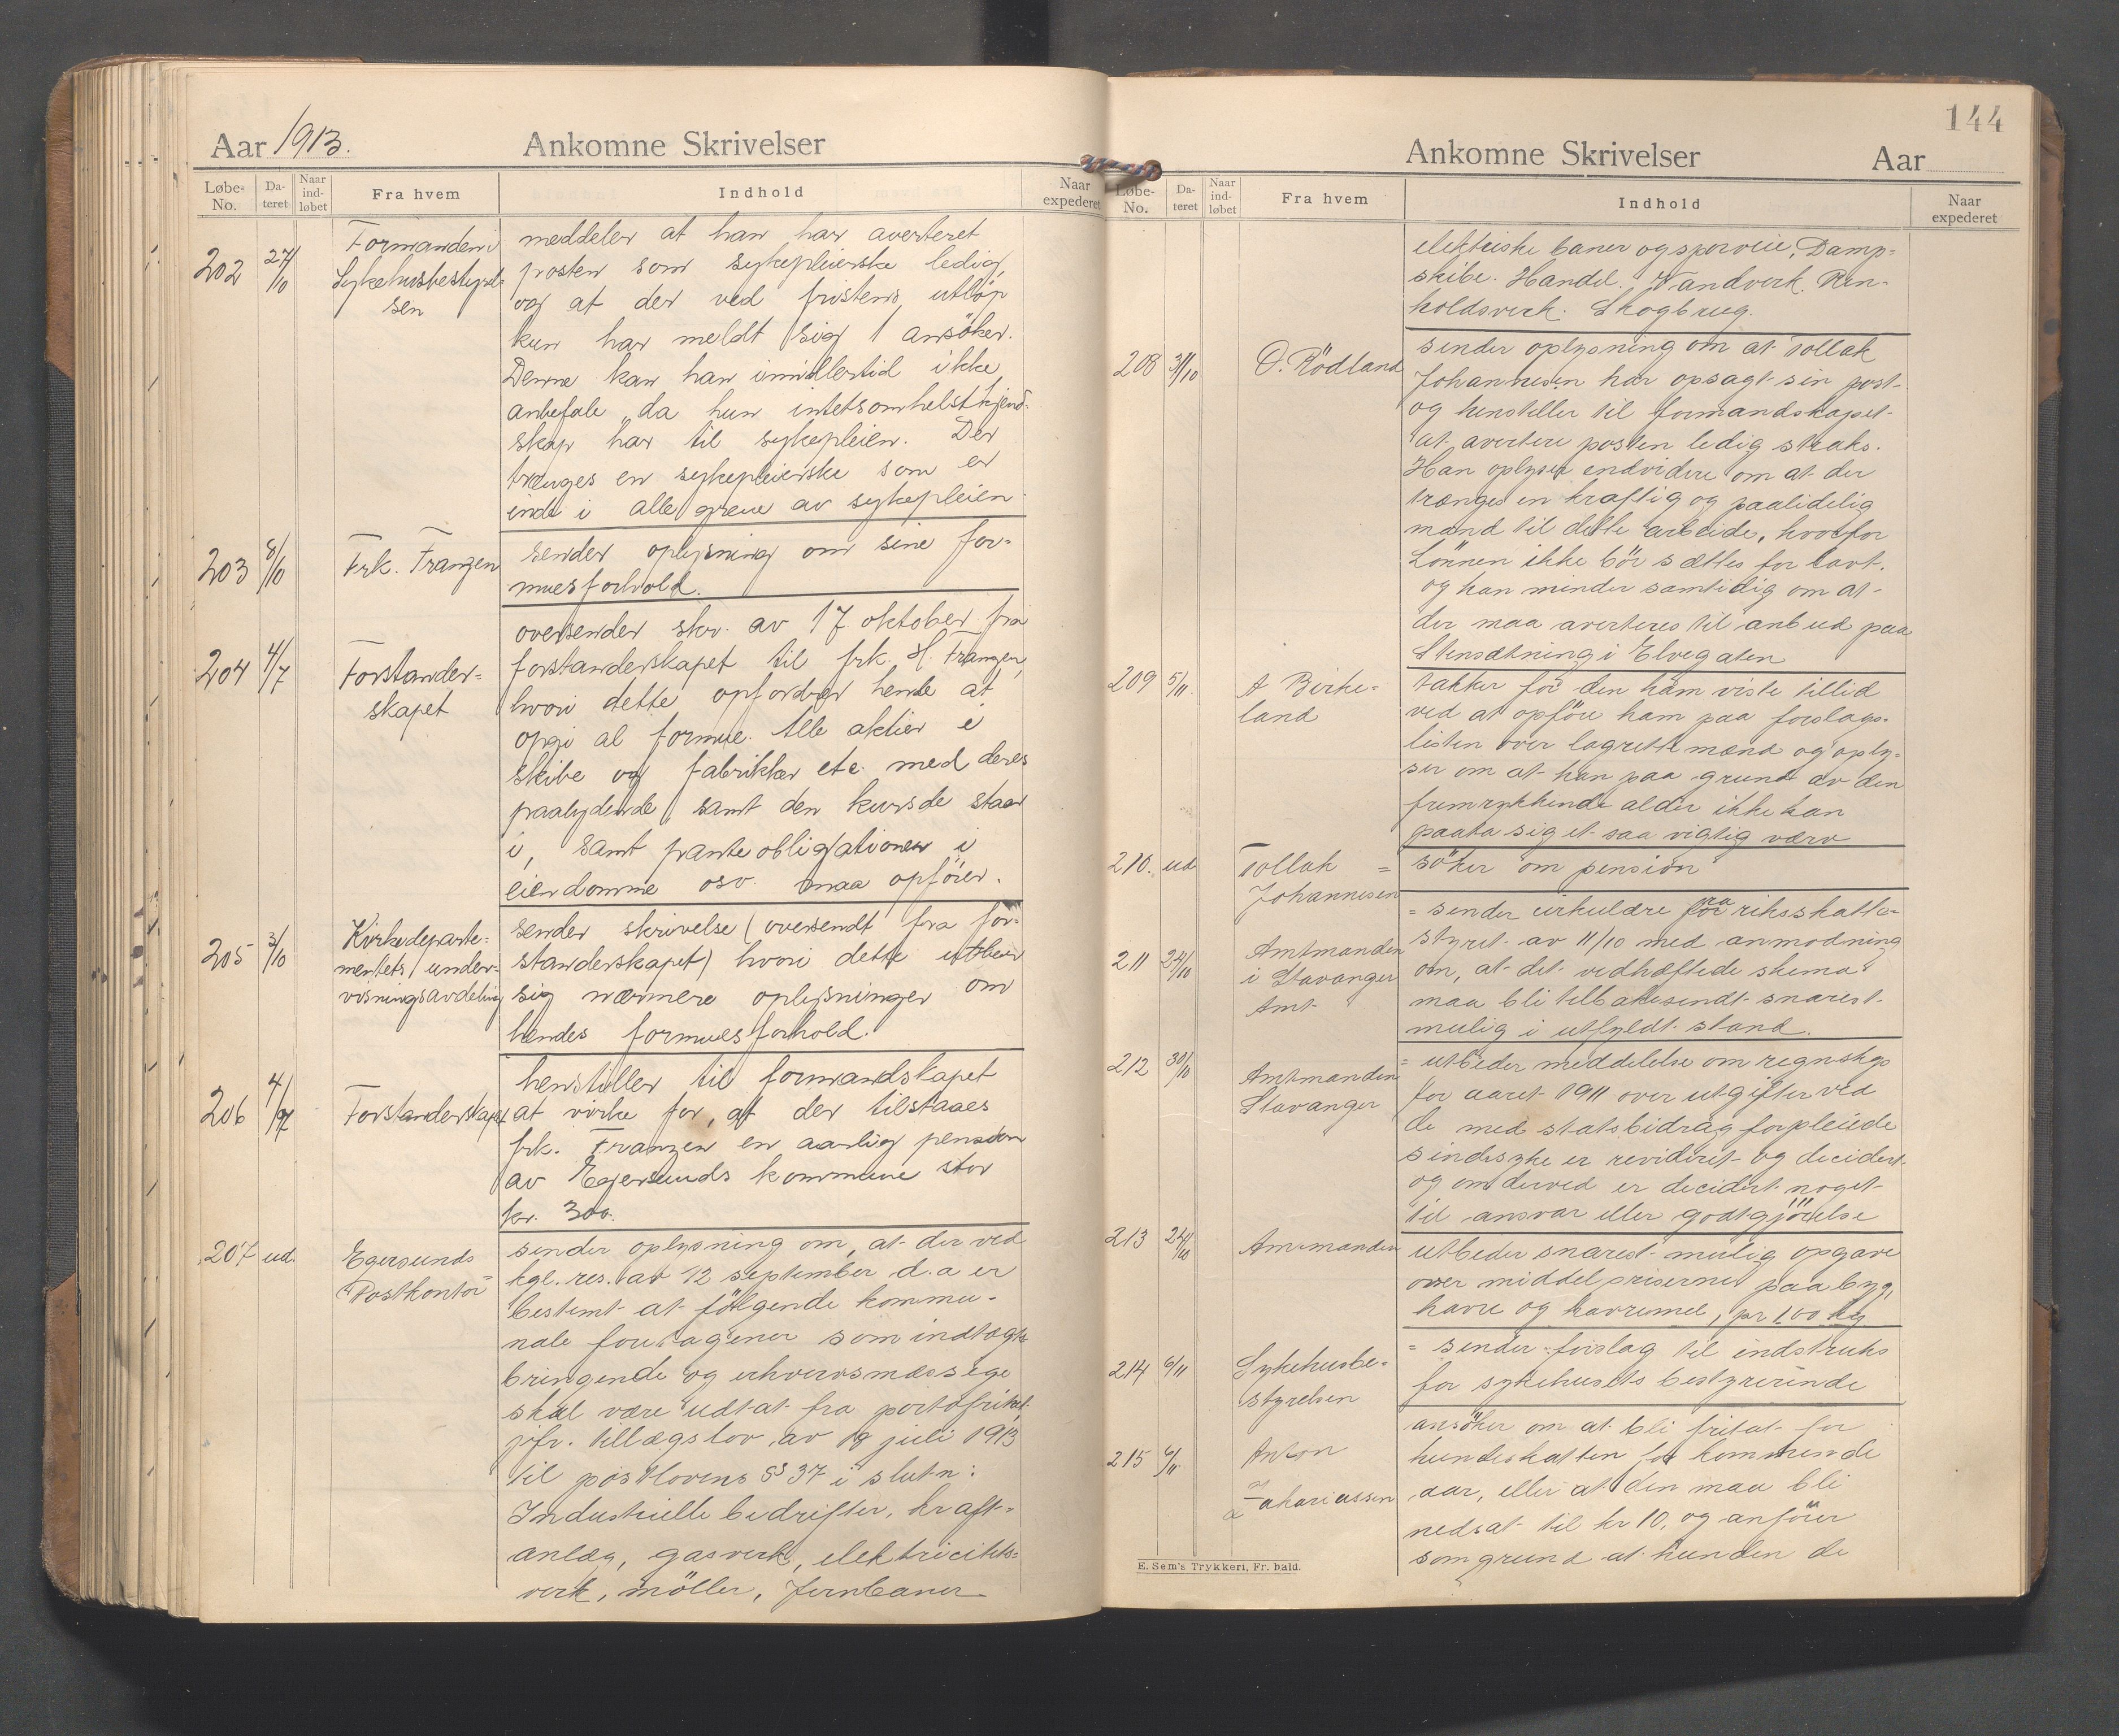 Aar 1913.
Ankomne Skrivelser
Løbe-No.
Da-teret
Naar ind-løbet
Fra hvem
Indhold
Naar expederet
202 27/10 Formanden i Sykehusbestyrel-sen
meddeler at han har averteret
posten som sykepleierske ledig,
og at der ved fristens utløp
kun har meldt sig 1 ansöker.
Denne kan han imidlertid ikke
anbefale, da hun intetsomhelst kjend-
skap har til sykepleien. Der
trænges en sykepleierske som er
inde i alle grene av sykepleien
203 8/10 Frk. Franzen
sender oplysning om sine for-
muesforhold.
204 4/7 Forstander-skapet
oversender skr. av 17 oktober fra
forstanderskapet til frk. H. Franzen,
hvori dette opfordrer hende at
opgi al formue. Alle aktier i
skibe og fabrikker etc. med deres
paalydende, samt den kurs de staar
i, samt panteobligationer i
eiendomme osv. maa opföres.
205 3/10 Kirkedeparte-mentets under-visningsavdeling
sender skrivelse (oversendt fra for-
standerskapet) hvori dette utbeer
sig nærmere oplysninger om
hendes formuesforhold.
206 4/ Forstanderskapet
henstiller til formandskapet
at virke for, at der tilstaaes
frk. Franzen en aarlig pension
av Egersunds kommune stor
kr. 300.
207 ud. Egersunds Postkontor
sender oplysning om, at der ved
kgl. res. av 12 september d.a er
bestemt at fölgende kommu-
nale foretagener som indtægts
bringende og erhvervsmæssige
skal være udtat fra portofrihet,
jvfr. tillægslov av 19 juli 1913
til postlovens § 37 i slutn:
Industrielle bedrifter, kraft-
anlæg, gasverk, elektricitets-
verk, möller, jernbaner
144
Ankomne Skrivelser
Aar
Løbe-No.
Da-teret
Naar ind-løbet
Fra hvem
Indhold
Naar expederet
elektriske baner og sporveie, Damp-
skibe. Handel. Vandverk. Ren-
holdsverk. Skogbrug.
208 31/10 O. Rödland
sender oplysning om at Tollak
Johannesen har opsagt sin post
og henstiller til formandskapet
at avertere posten ledig straks.
Han oplyser endvidere om at der
trænges en kraftig og paalidelig
mand til dette arbeide, hvorfor
Lönnen ikke bör sættes for lavt.
og han minder samtidig om at
der maa averteres til anbud paa
Stensætning i Elvegaten
209 5/11. A Birke-land
takker for den ham viste tillid
ved at opföre ham paa forslags-
listen over lagrettemænd og oply-
ser om at han paa grund av den
fremrykkende alder ikke kan
paata sig et saa vigtig værv
210. ud Tollak = Johannesen
söker om pension
211 24/10 Amtmanden i Stavanger Amt
= sender cirkulære fra riksskatte-
styret av 11/10 med anmodning
om, at det vedhæftede skema
maa bli tilbakesendt snarest
mulig i utfyldt stand.
212 30/10 Amtmanden Stavanger
= utbeder meddelelse om regnskap
for aaret 1911 over utgifter ved
de med statsbidrag forpleiede
sindssyke er revideret og decidert
og om derved er decidert noget
til ansvar eller godtgjörelse
213 24/10 Amtmanden
utbeder snarest mulig opgave
over middelpriserne paa byg,
havre og havremel, pr 100 kg
214 6/11 Sykehusbe-styrelsen
= sender forslag til indstruks
for sykehusets bestyrerinde
215 6/11. Anton Zakariassen
ansöker om at bli fritat for
hundeskatten for kommende
aar, eller at den maa bli
nedsat til kr 10, og anförer
som grund at hunden de
E. Sem's Trykkeri, Fr.hald.